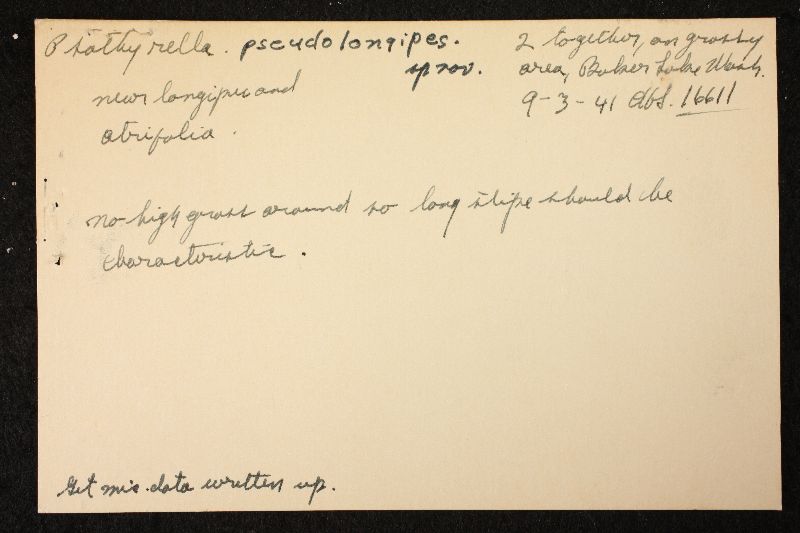 Psathyrella. pseudolongipes.
sp nov.
near longipes and
atrifolia.
2 together, on grassy
area, Baker Lake Wash.
9-3-41 Abs. 16611
no high grass around so long stipe should be
characteristic.
Get mic. data written up.